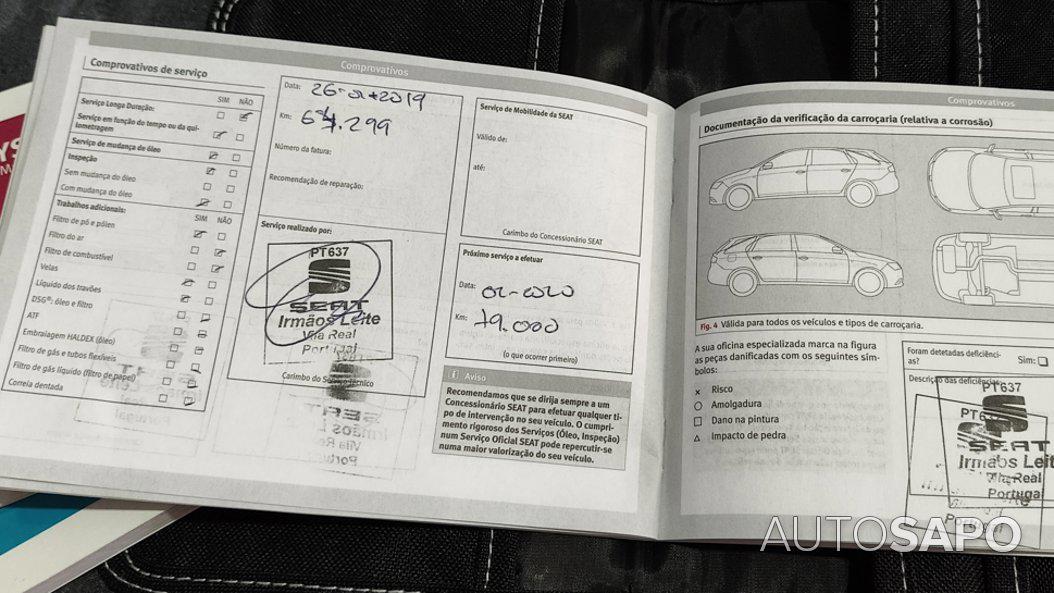 Comprovativos
Comprovativos de serviço
SIM NÃO
Serviço Longa Duração:
Serviço em função do tempo ou da qui-
lometragem
Serviço de mudança de óleo
Inspeção
Sem mudança do óleo
Com mudança do óleo
Trabalhos adicionais:
SIM NÃO
Filtro de pó e pólen
Filtro do ar
Filtro de combustível
Velas
Líquido dos travões
DSG®: óleo e filtro
ATF
Embraiagem HALDEX (óleo)
Filtro de gás e tubos flexíveis
Filtro de gás líquido (filtro de papel)
Correia dentada
Data: 26-01-2019
Km: 64.299
Número da fatura:
Recomendação de reparação:
Serviço realizado por:
PT637
SEAT
Irmãos Leite
Vila Real
Portugal
Carimbo do Serviço Técnico
Serviço de Mobilidade da SEAT
Válido de:
até:
Carimbo do Concessionário SEAT
Próximo serviço a efetuar
Data: 01-2020
Km: 79.000
(o que ocorrer primeiro)
i Aviso
Recomendamos que se dirija sempre a um
Concessionário SEAT para efetuar qualquer ti-
po de intervenção no seu veículo. O cumpri-
mento rigoroso dos Serviços (Óleo, Inspeção)
num Serviço Oficial SEAT pode repercutir-se
numa maior valorização do seu veículo.
Comprovativos
Documentação da verificação da carroçaria (relativa a corrosão)
Fig. 4 Válida para todos os veículos e tipos de carroçaria.
A sua oficina especializada marca na figura
as peças danificadas com os seguintes sím-
bolos:
× Risco
○ Amolgadura
□ Dano na pintura
△ Impacto de pedra
Foram detetadas deficiênci-
as?
Sim:
Descrição das deficiências:
PT637
SEAT
Irmãos Leit
Vila Real
Portugal
Portugal
AUTOSAPO